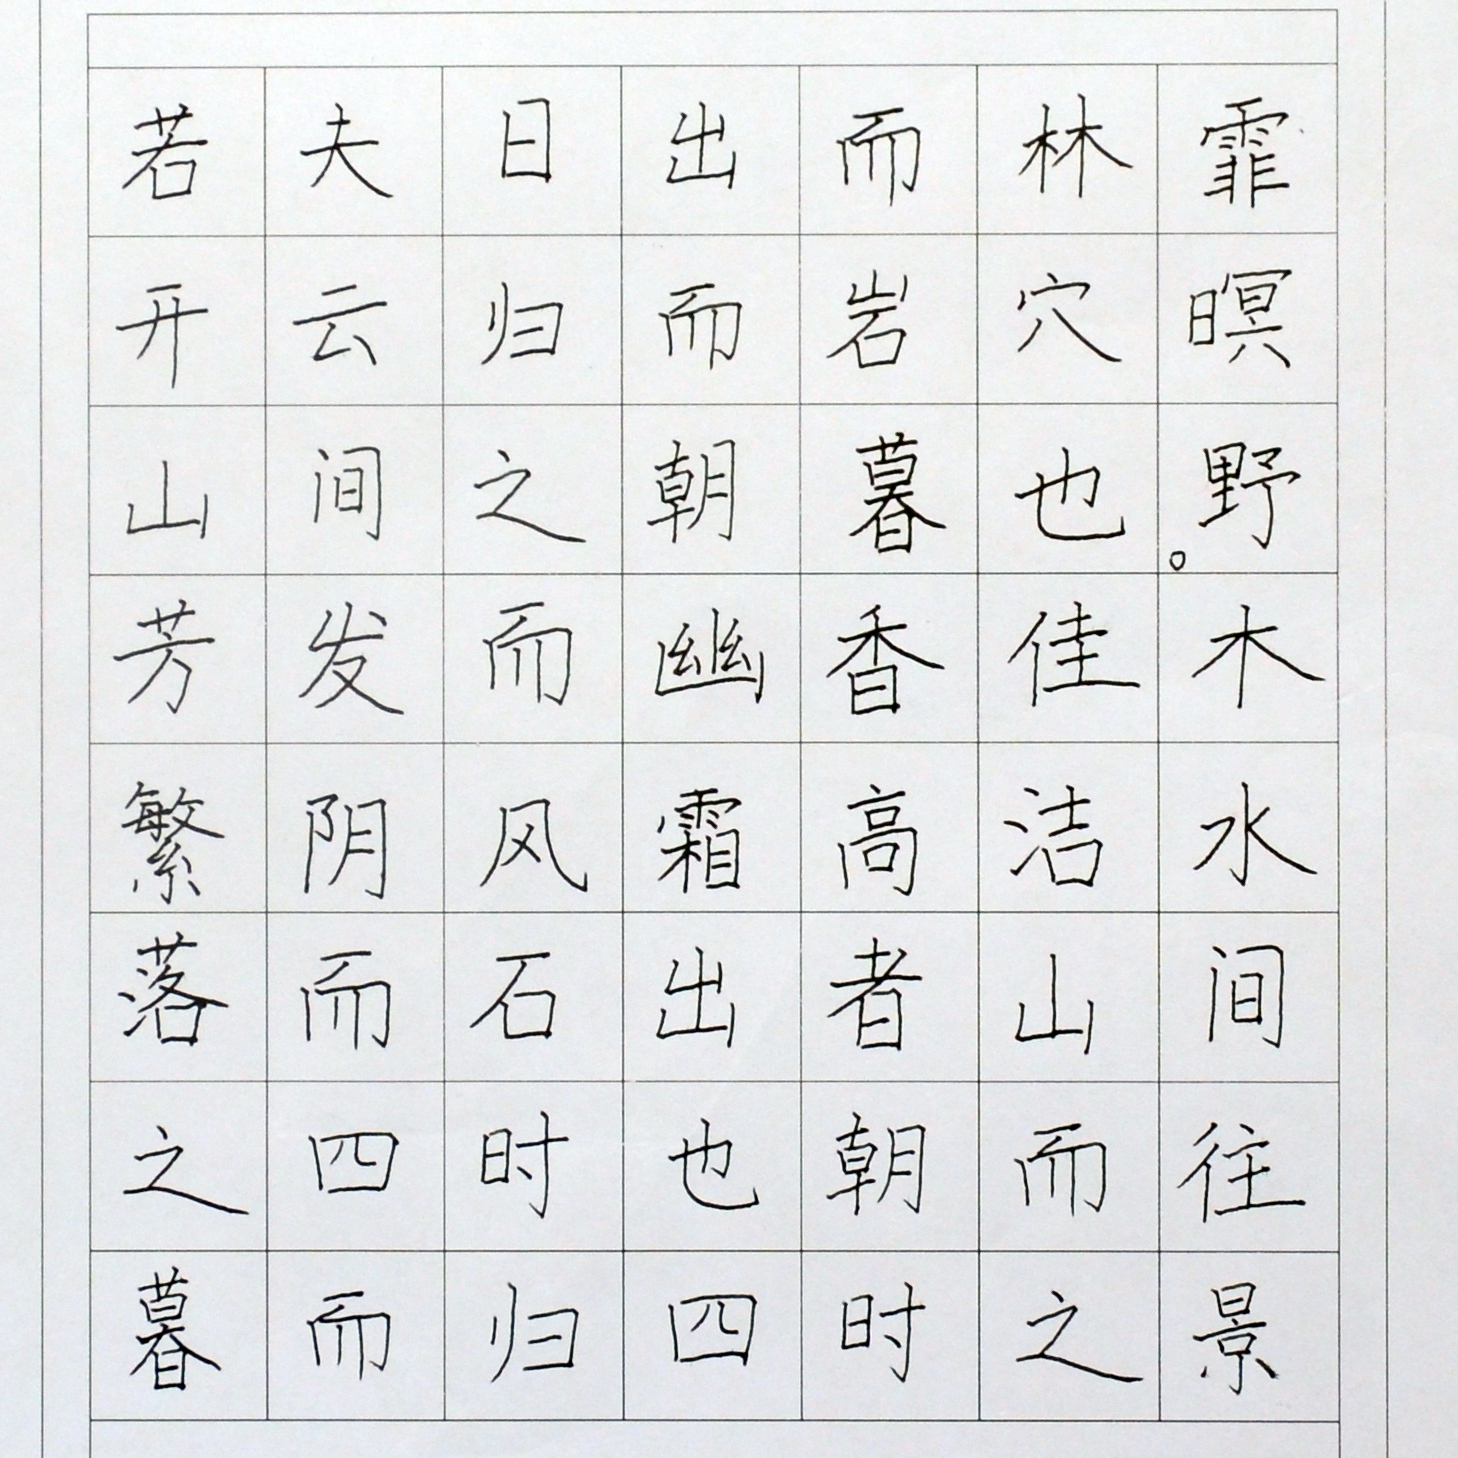 若夫日出而林霏
开云归而岩穴暝
山间之朝暮也。野
芳发而幽香佳木
繁阴风霜高洁水
落而石出者山间
之四时也朝而往
暮而归四时之景